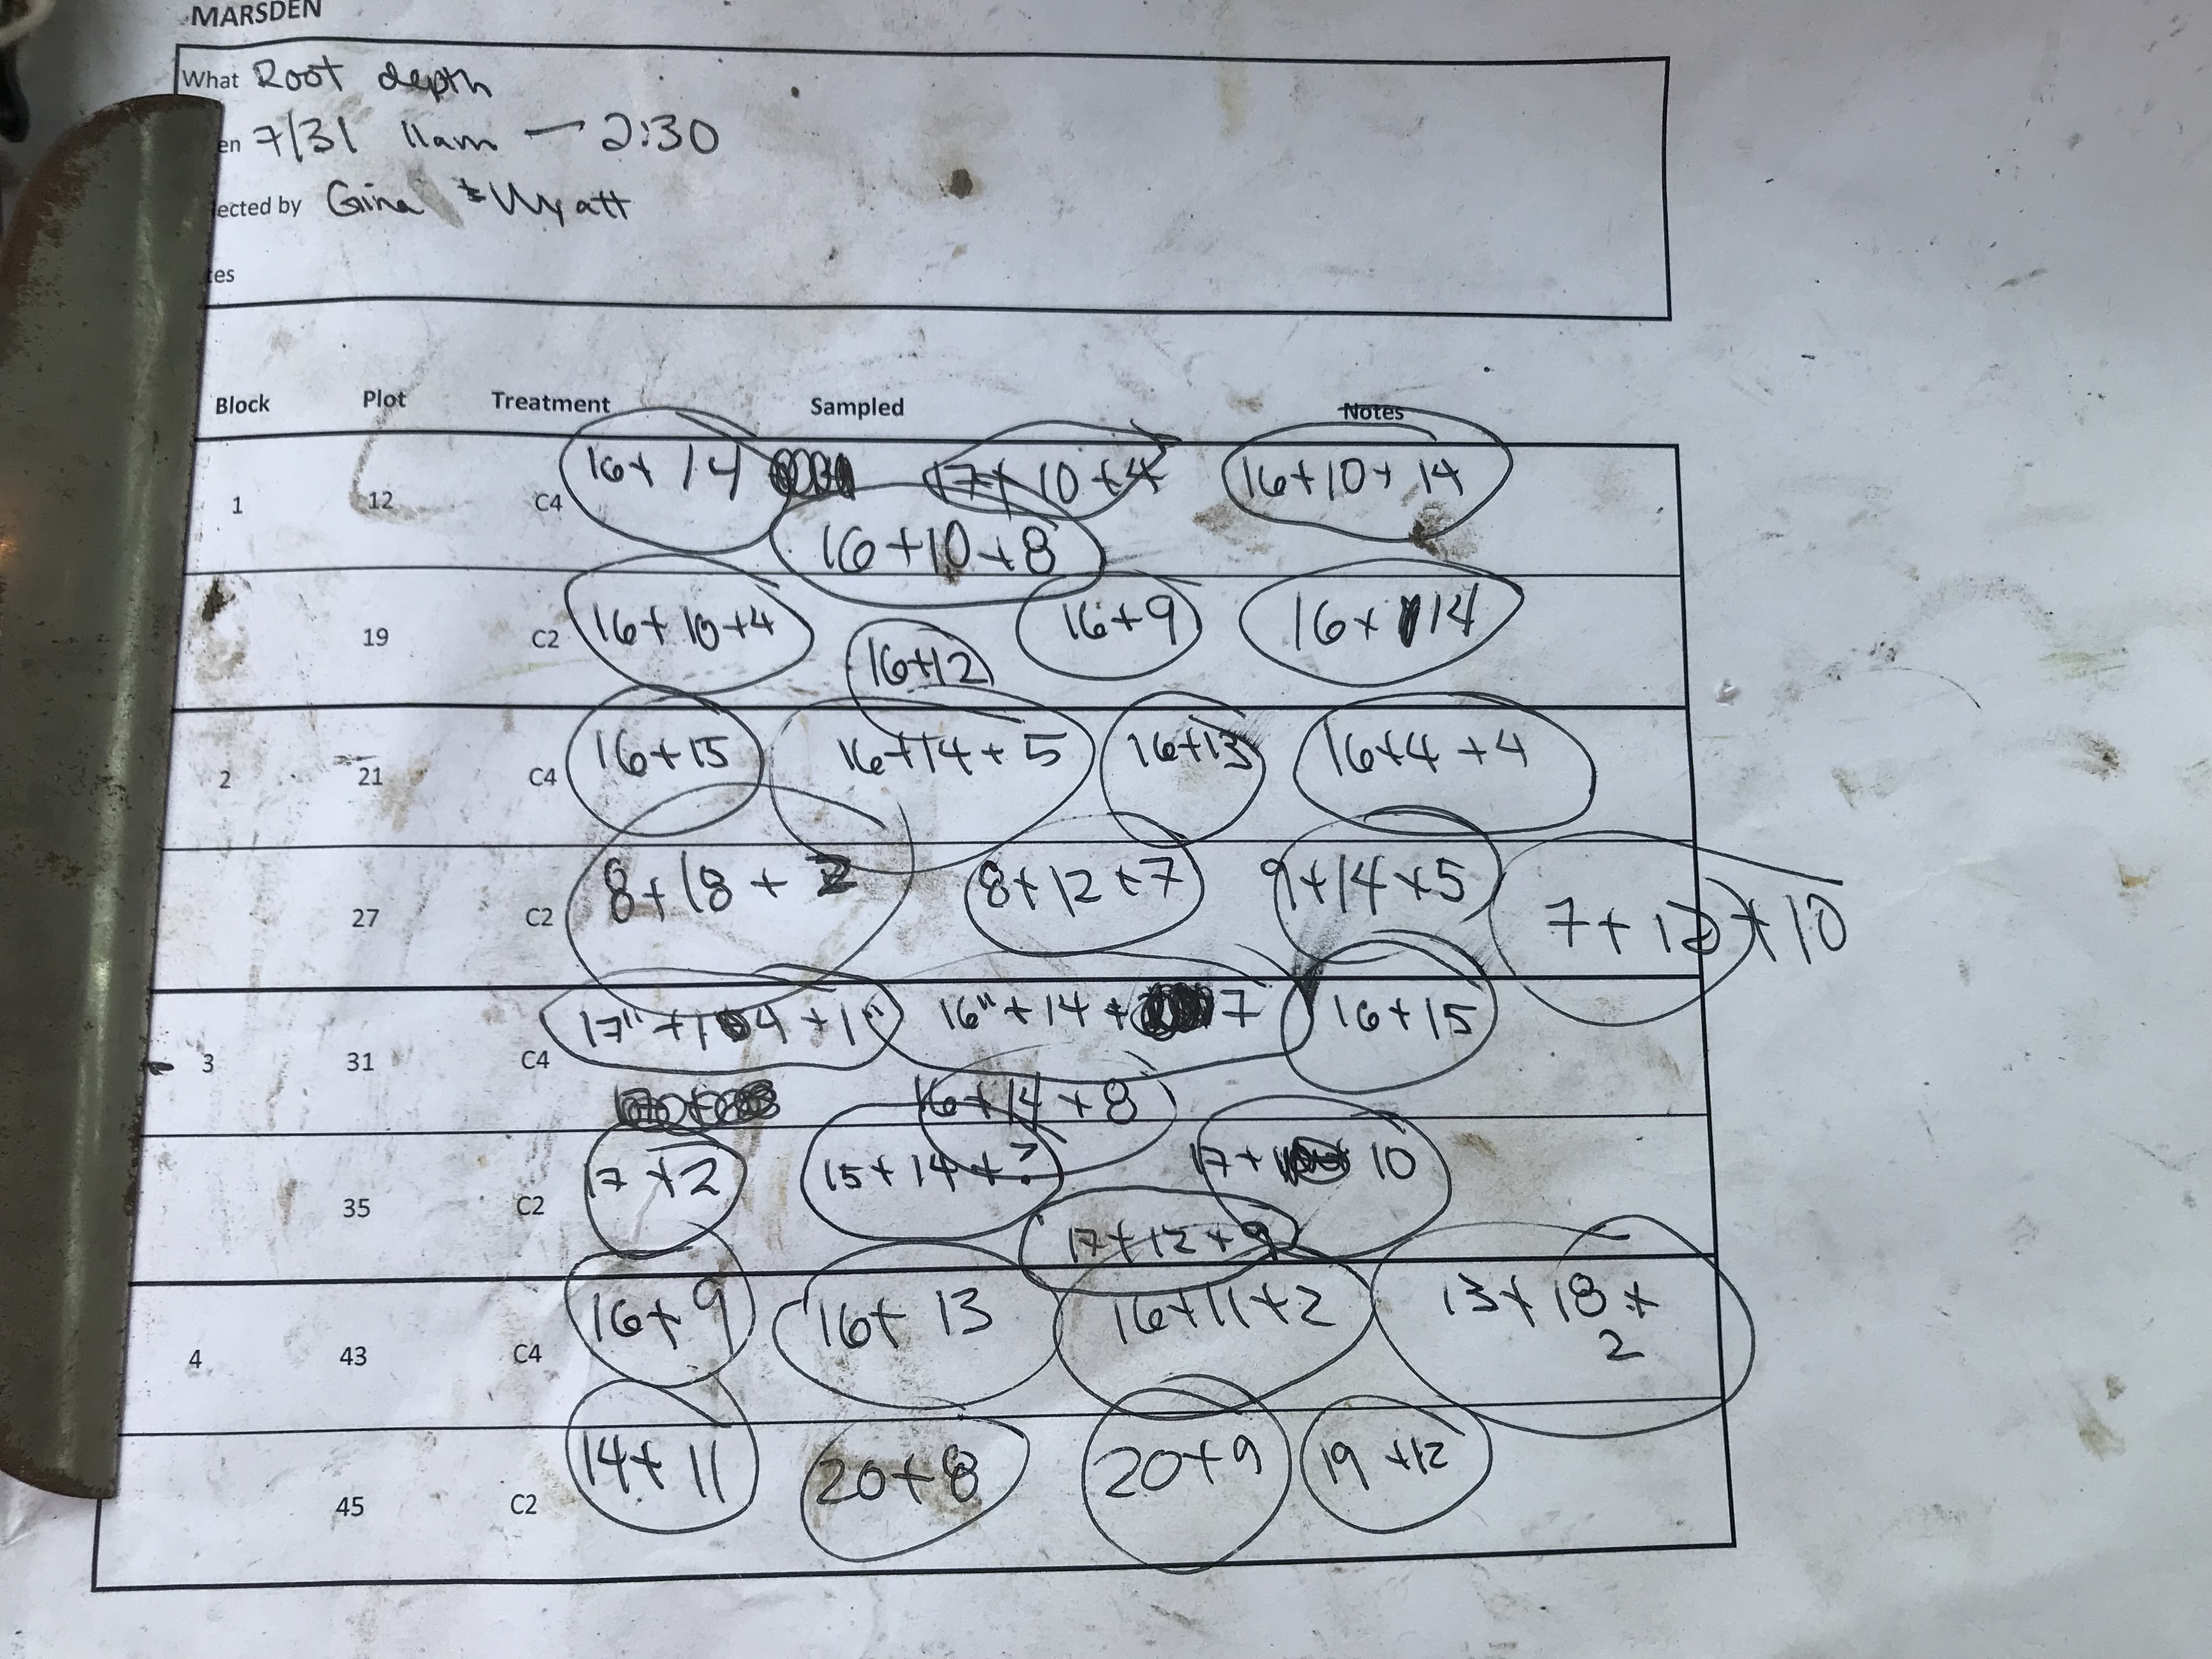 MARSDEN
What Root depth
en 7/31 11am — 2:30
lected by Gina & Wyatt
tes
Block Plot Treatment Sampled Notes
1 12 C4 16+14 17+10+4 16+10+14
16+10+8
19 C2 16+10+4 16+12 16+9 16+14
2 21 C4 16+15 16+14+5 16+13 16+4+4
27 C2 8+18+2 8+12+7 9+14+5 7+12+10
3 31 C4 17"+14+1" 16"+14+7 16+15
16+14+8
35 C2 17+2 15+14+? 17+10
17+12+9
4 43 C4 16+9 16+13 16+11+2 13+18+
2
45 C2 14+11 20+8 20+9 19+12